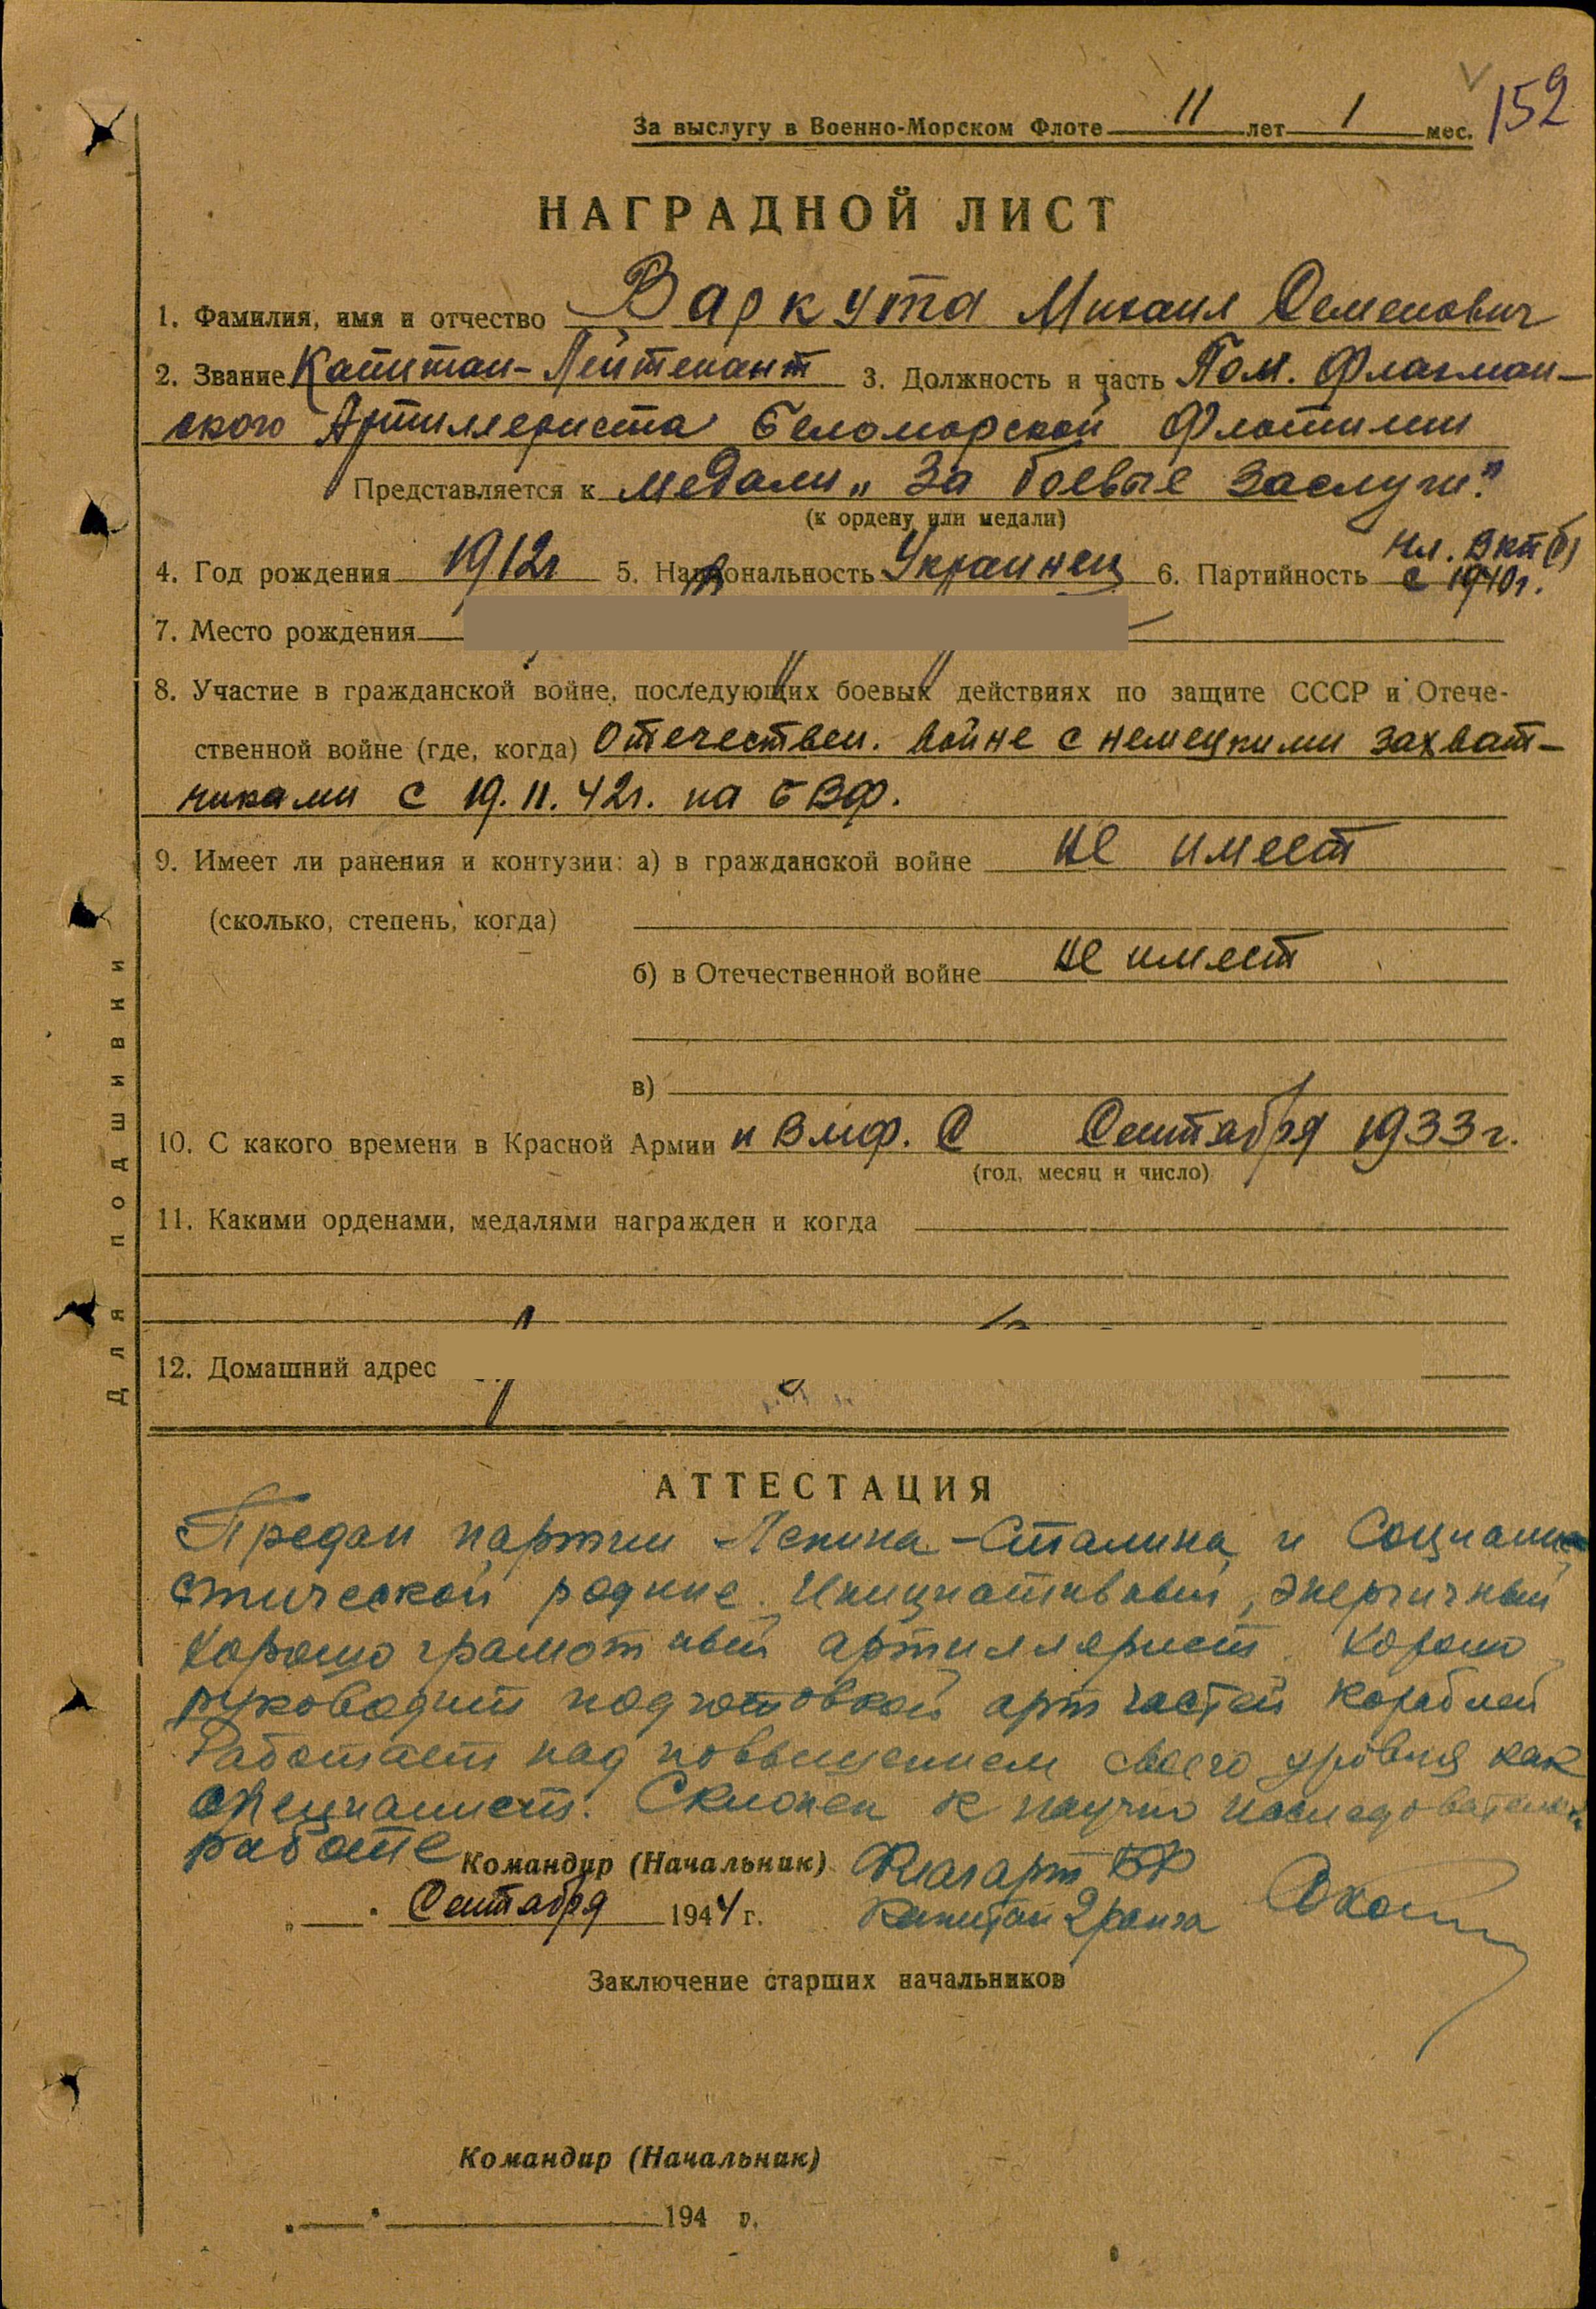 152
За выслугу в Военно-Морском Флоте 11 лет 1 мес.
НАГРАДНОЙ ЛИСТ
1. Фамилия, имя и отчество Варкута Михаил Семенович
2. Звание Капитан-Лейтенант 3. Должность и часть Пом. Флагман-
ского Артиллериста Беломорской Флотилии
Представляется к медали „За боевые заслуги."
(к ордену или медали)
4. Год рождения 1912г 5. Национальность Украинец 6. Партийность Чл. ВКП(б) с 1940г.
7. Место рождения
8. Участие в гражданской войне, последующих боевых действиях по защите СССР и Отече-
ственной войне (где, когда) Отечествен. войне с немецкими захват-
чиками с 19.11.42г. на БВФ.
9. Имеет ли ранения и контузии: а) в гражданской войне не имеет
(сколько, степень, когда)
б) в Отечественной войне не имеет
в)
10. С какого времени в Красной Армии и ВМФ. С Сентября 1933г.
(год, месяц и число)
11. Какими орденами, медалями награжден и когда
12. Домашний адрес
Для подшивки
АТТЕСТАЦИЯ
Предан партии Ленина-Сталина и Социали-
стической родине. Инициативный, энергичный
хорошо грамотный артиллерист. Хорошо
руководит подготовкой арт частей кораблей
Работает над повышением своего уровня как
специалист. Склонен к научно исследовательской
работе
Командир (Начальник) Флагарт БФ
„ " Сентября 1944 г. Капитан 2 ранга
Заключение старших начальников
Командир (Начальник)
„ " 194 г.